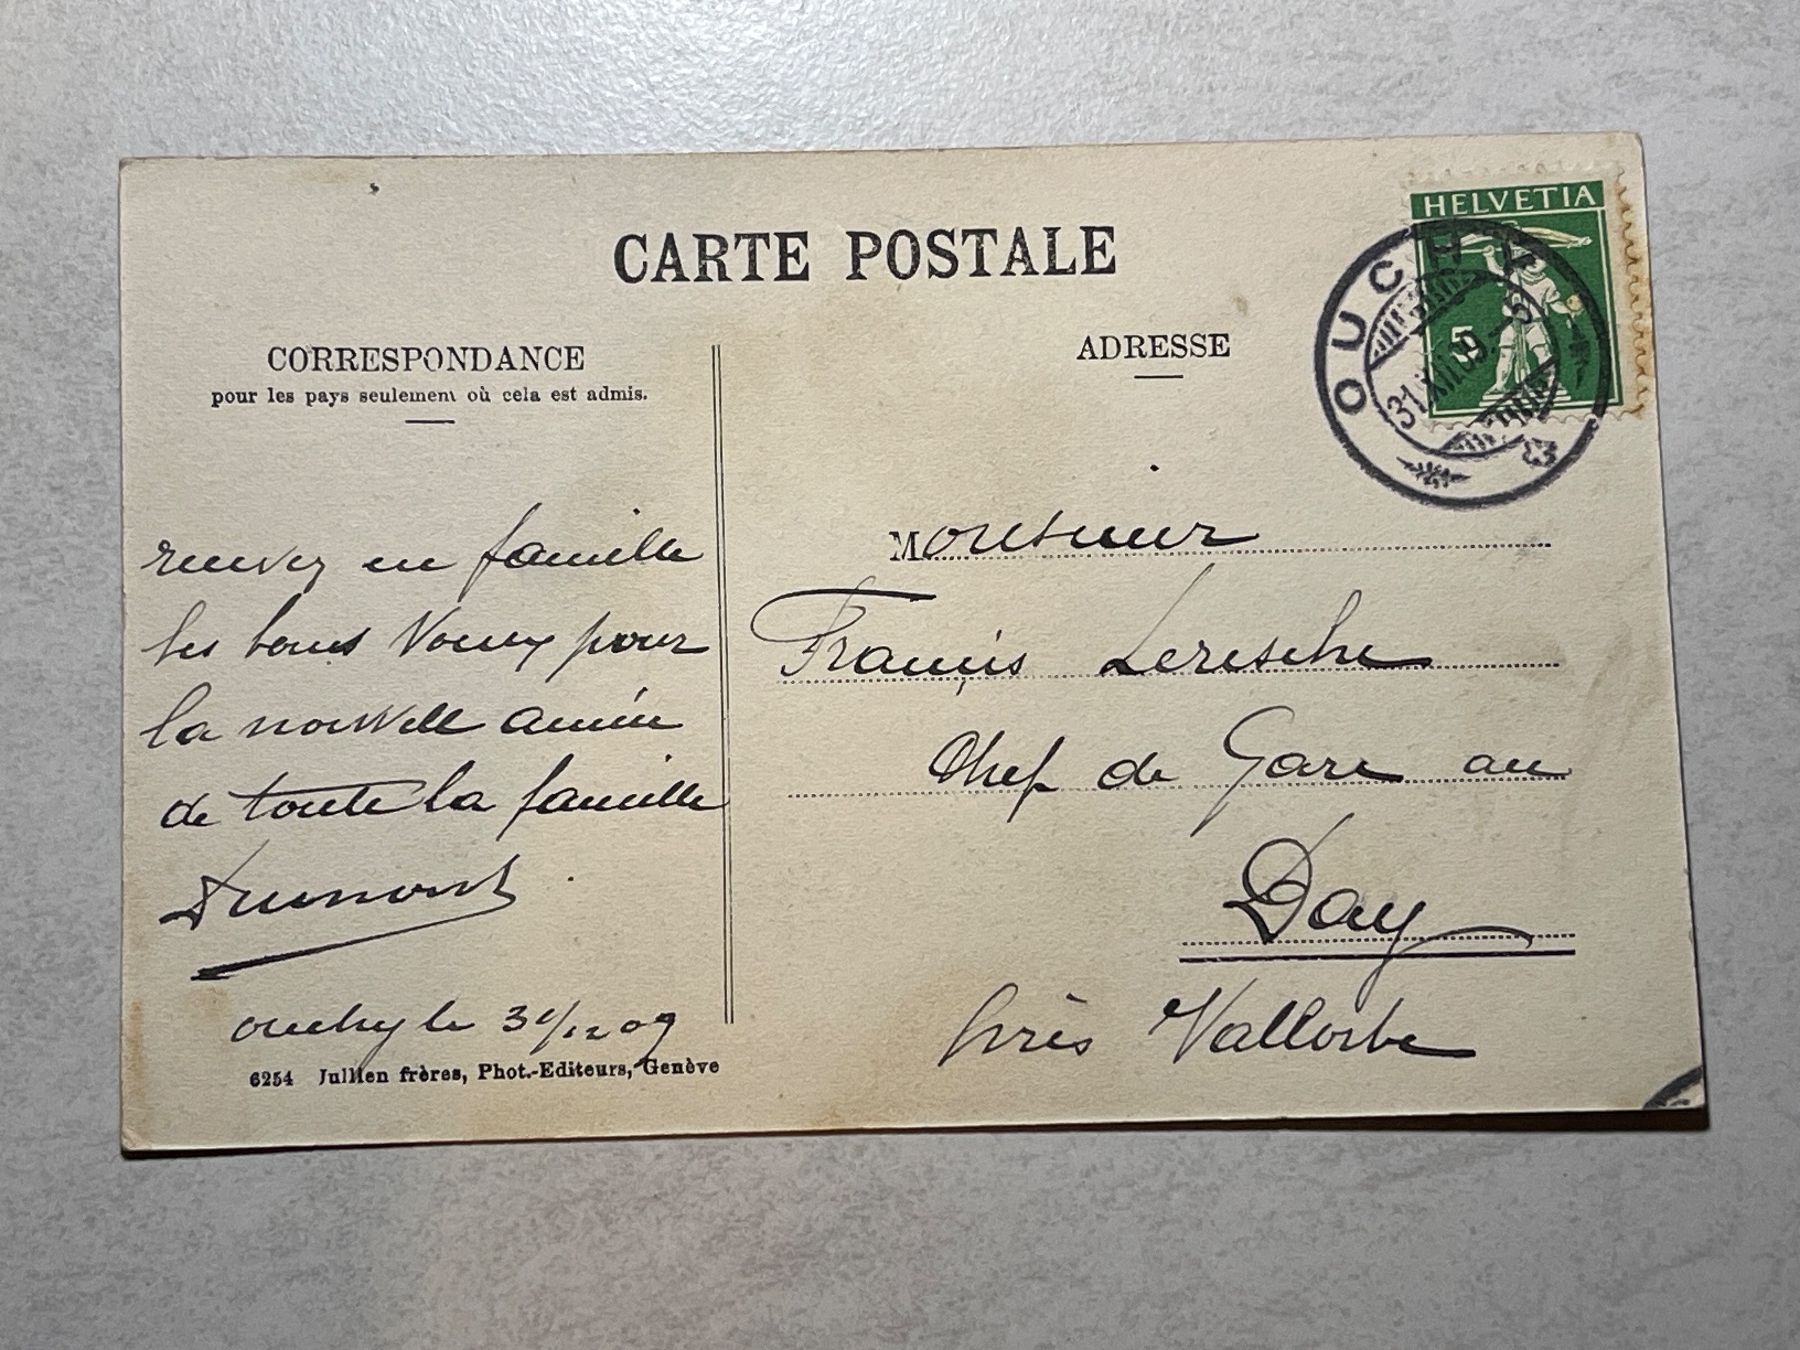 CARTE POSTALE
CORRESPONDANCE
pour les pays seulement où cela est admis.
recevez en famille
les bons Voeux pour
la nouvelle année
de toute la famille
Dumont
ouchy le 31/12 09
6254 Jullien frères, Phot.-Editeurs, Genève
ADRESSE
HELVETIA
5
OUCHY
31.XII.09.-8
Monsieur
Francis Leresche
Chef de Gare au
Day
près Vallorbe